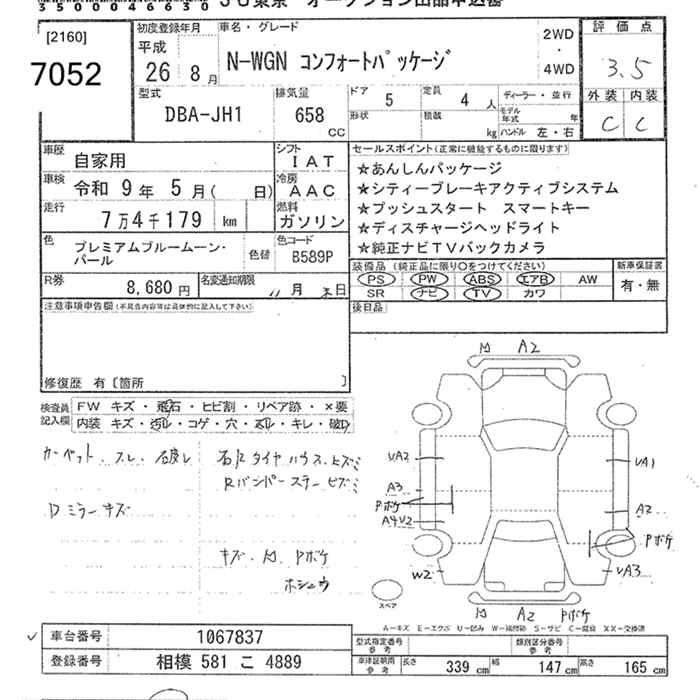 350004 6630
JU東京 オークション出品申込書
[2160]
7052
初度登録年月
平成
26 8月
車名・グレード
N-WGN コンフォートパッケージ
2WD
・
4WD
評価点
3.5
外装 内装
C C
型式
DBA-JH1
排気量
658
CC
ドア
5
定員
4 人
ディーラー・並行
形状
積載
kg
モデル年式 年
ハンドル 左・右
車歴
自家用
シフト
IAT
車検
令和 9年 5月( 日)
冷房
AAC
走行
7万4千179 km
燃料
ガソリン
色
プレミアムブルームーン・パール
色替
色コード
B589P
R券
8,680円
名変通知期限
月 末日
セールスポイント(正常に機能するものに限ります)
★あんしんパッケージ
★シティーブレーキアクティブシステム
★プッシュスタート スマートキー
★ディスチャージヘッドライト
★純正ナビTVバックカメラ
装備品 (純正品に限り○をつけてください)
PS PW ABS エアB AW
SR ナビ TV カワ
新車保証書
有・無
後日品
注意事項申告欄(不具合内容等は具体的に記入して下さい)
修復歴 有〔箇所 〕
検査員記入欄
FW キズ・飛石・ヒビ割・リペア跡・×要
内装 キズ・汚れ・コゲ・穴・スレ・キレ・破れ
カーペット、スレ、
右R タイヤハウス、ヒズミ
Rバンパーステー ヒズミ
Dミラーキズ
キズ、凹、Pボケ
A2
VA2
VA1
A3
Pボケ
A4V2
A2
Pボケ
W2
VA3
A2
Pボケ
スペア
A-キズ E-エクボ U-凹み W-補修跡 S-サビ C-腐食 XX-交換済
車台番号 1067837
登録番号 相模 581 こ 4889
型式指定番号 参考
類別区分番号 参考
車検証期間 参考
長さ 339 cm
幅 147 cm
高さ 165 cm